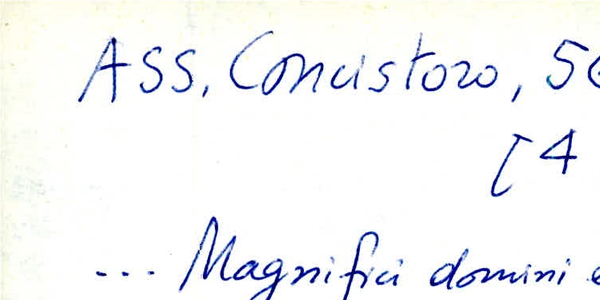 ASS, Concistoro, 5
[4
... Magnifici domini e